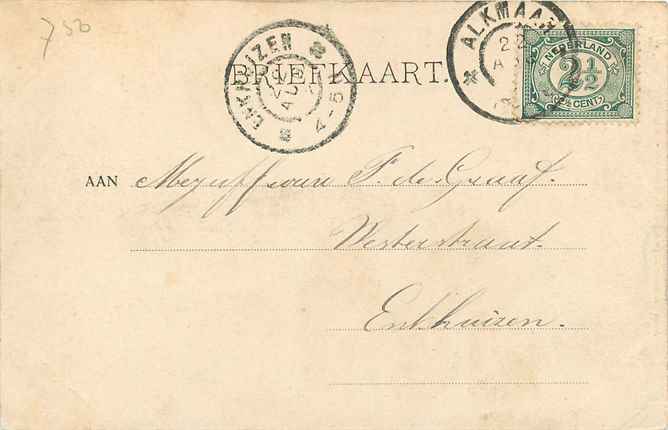 750
ENKHUIZEN
4-5
ALKMAAR
22
NEDERLAND
2½
CENT
BRIEFKAART.
AAN Mejuffrouw F. de Graaf.
Westerstraat.
Enkhuizen.